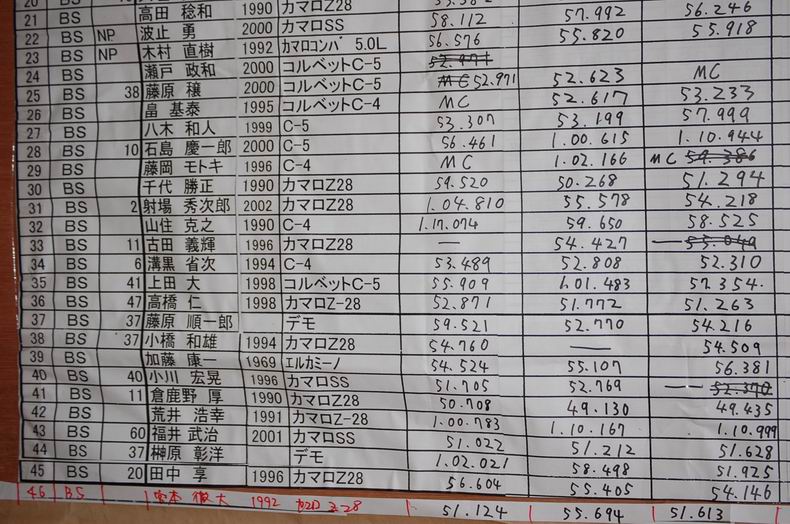 20 BS
21 BS 高田 稔和 1990 カマロZ28
22 BS NP 波止 勇 2000 カマロSS 58.112 57.992 56.246
23 BS NP 木村 直樹 1992 カマロコンバ 5.0L 56.576 55.820 55.918
24 BS 瀬戸 政和 2000 コルベットC-5 52.971
25 BS 38 藤原 穣 2000 コルベットC-5 MC 52.971 52.623 MC
26 BS 畠 基泰 1995 コルベットC-4 MC 52.617 53.233
27 BS 八木 和人 1999 C-5 53.307 53.199 57.999
28 BS 10 石島 慶一郎 2000 C-5 56.461 1.00.615 1.10.944
29 BS 藤岡 モトキ 1996 C-4 MC 1.02.166 MC 59.386
30 BS 千代 勝正 1990 カマロZ28 59.520 50.268 51.294
31 BS 2 射場 秀次郎 2002 カマロZ28 1.04.810 55.578 54.218
32 BS 山住 克之 1990 C-4 1.17.074 59.650 58.525
33 BS 11 古田 義輝 1996 カマロZ28 — 54.427 — 55.049
34 BS 6 溝黒 省次 1994 C-4 53.489 52.808 52.310
35 BS 41 上田 大 1998 コルベットC-5 55.909 1.01.483 57.354.
36 BS 47 高橋 仁 1998 カマロZ-28 52.871 51.772 51.263
37 BS 37 藤原 順一郎 デモ 59.521 52.770 54.216
38 BS 37 小橋 和雄 1994 カマロZ28 54.760 — 54.509
39 BS 加藤 康一 1969 エルカミーノ 54.524 55.107 56.381
40 BS 40 小川 宏晃 1996 カマロSS 51.705 52.769 — 52.370
41 BS 11 倉鹿野 厚 1990 カマロZ28 50.708 49.130 49.435
42 BS 荒井 浩幸 1991 カマロZ-28 1.00.783 1.10.167 1.10.999
43 BS 60 福井 武治 2001 カマロSS 51.022 51.212 51.628
44 BS 37 榊原 彰洋 デモ 1.02.021 58.498 51.925
45 BS 20 田中 享 1996 カマロZ28 56.604 55.405 54.146
46 BS 1992 カマロ Z-28 51.124 55.694 51.613